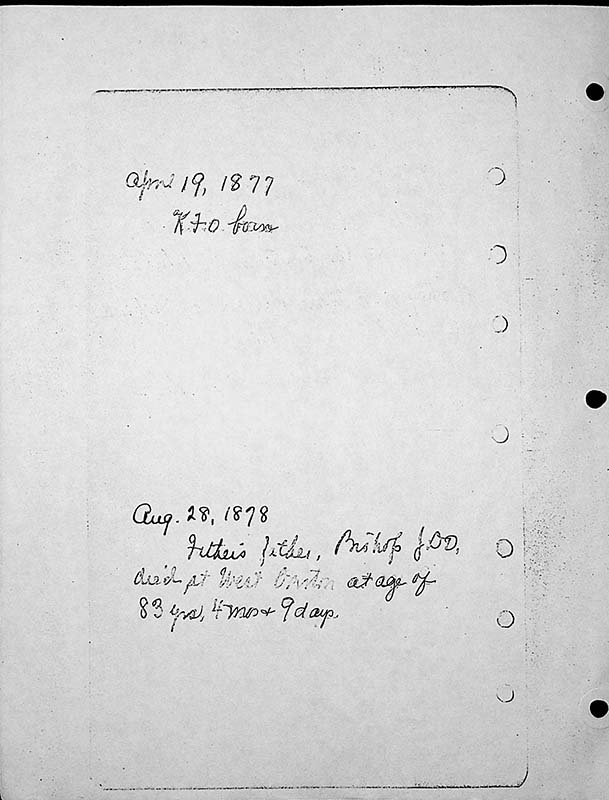 April 19, 1877
K.F.O. born
Aug. 28, 1878
Father's father, Bishop J.
died at West at age of
83 yrs, 4 mos + 9 days.